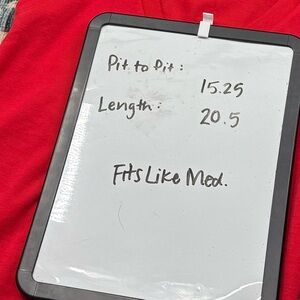 Pit to Pit: 15.25
Length: 20.5
Fits Like Med.